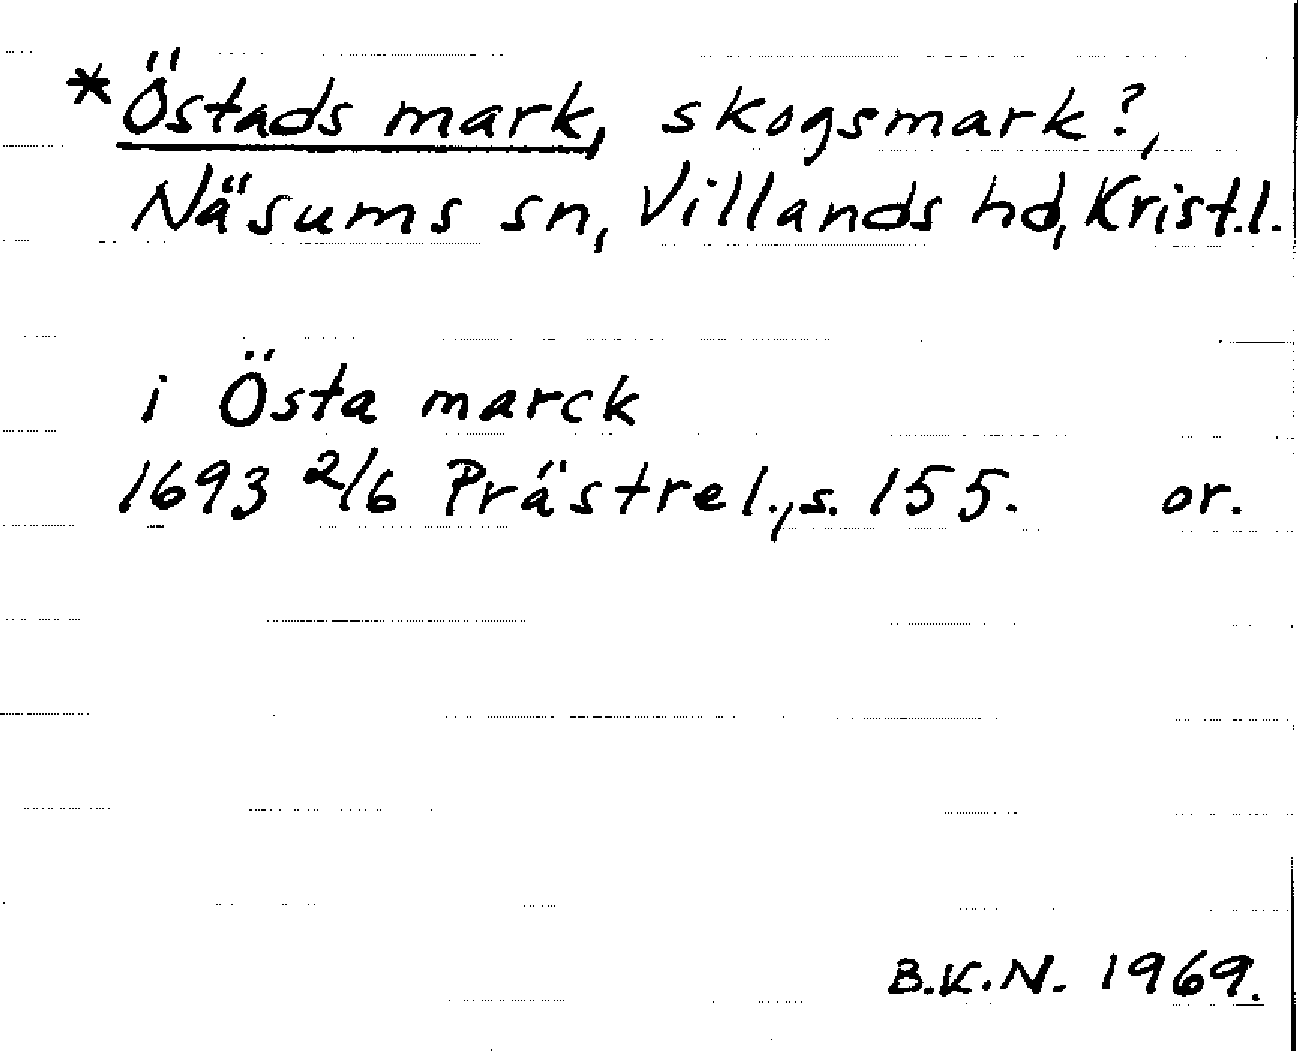 *Östads mark, skogsmark?,
Näsums sn, Villands hd, Krist.l.
i Östa marck
1693 2/6 Prästrel., s. 155. or.
B.K.N. 1969.